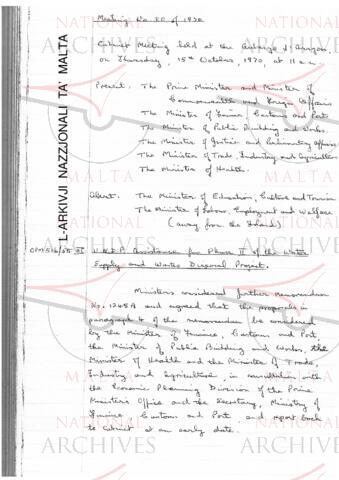 Meeting No 80 of 1970
Cabinet Meeting held at the Auberge d'Aragon,
on Thursday, 15th October, 1970, at 11 a.m.
Present: The Prime Minister and Minister of
Commonwealth and Foreign Affairs
The Minister of Finance, Customs and Port
The Minister of Public Building and Works.
The Minister of Justice and Parliamentary Affairs
The Minister of Trade, Industry and Agriculture
The Minister of Health.
Absent: The Minister of Education, Culture and Tourism
The Minister of Labour, Employment and Welfare
(away from the Island)
U.N.D.P. Assistance for Phase II of the Water
Supply and Wastes Disposal Project.
Ministers considered further Memorandum
No. 1245A and agreed that the proposals in
paragraph 4 of the memorandum be considered
by the Minister of Finance, Customs and Port,
the Minister of Public Building and Works, the
Minister of Health and the Minister of Trade,
Industry and Agriculture, in consultation with
the Economic Planning Division of the Prime
Minister's Office and the Secretary, Ministry of
Finance, Customs and Port and report back
to Cabinet at an early date.
L-ARKIVJI NAZZJONALI TA' MALTA
NATIONAL
ARCHIVES
MALTA